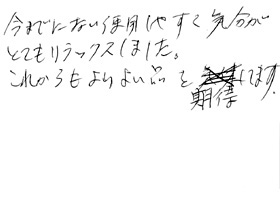 今までにない使用しやすく気分が
とてもリラックスしました。
これからもよりよい品を期待してます.